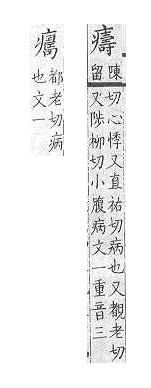 陳留
切心悸又直祐切病也又覩老切
又陟柳切小腹病文一重音三
都老切病
也文一